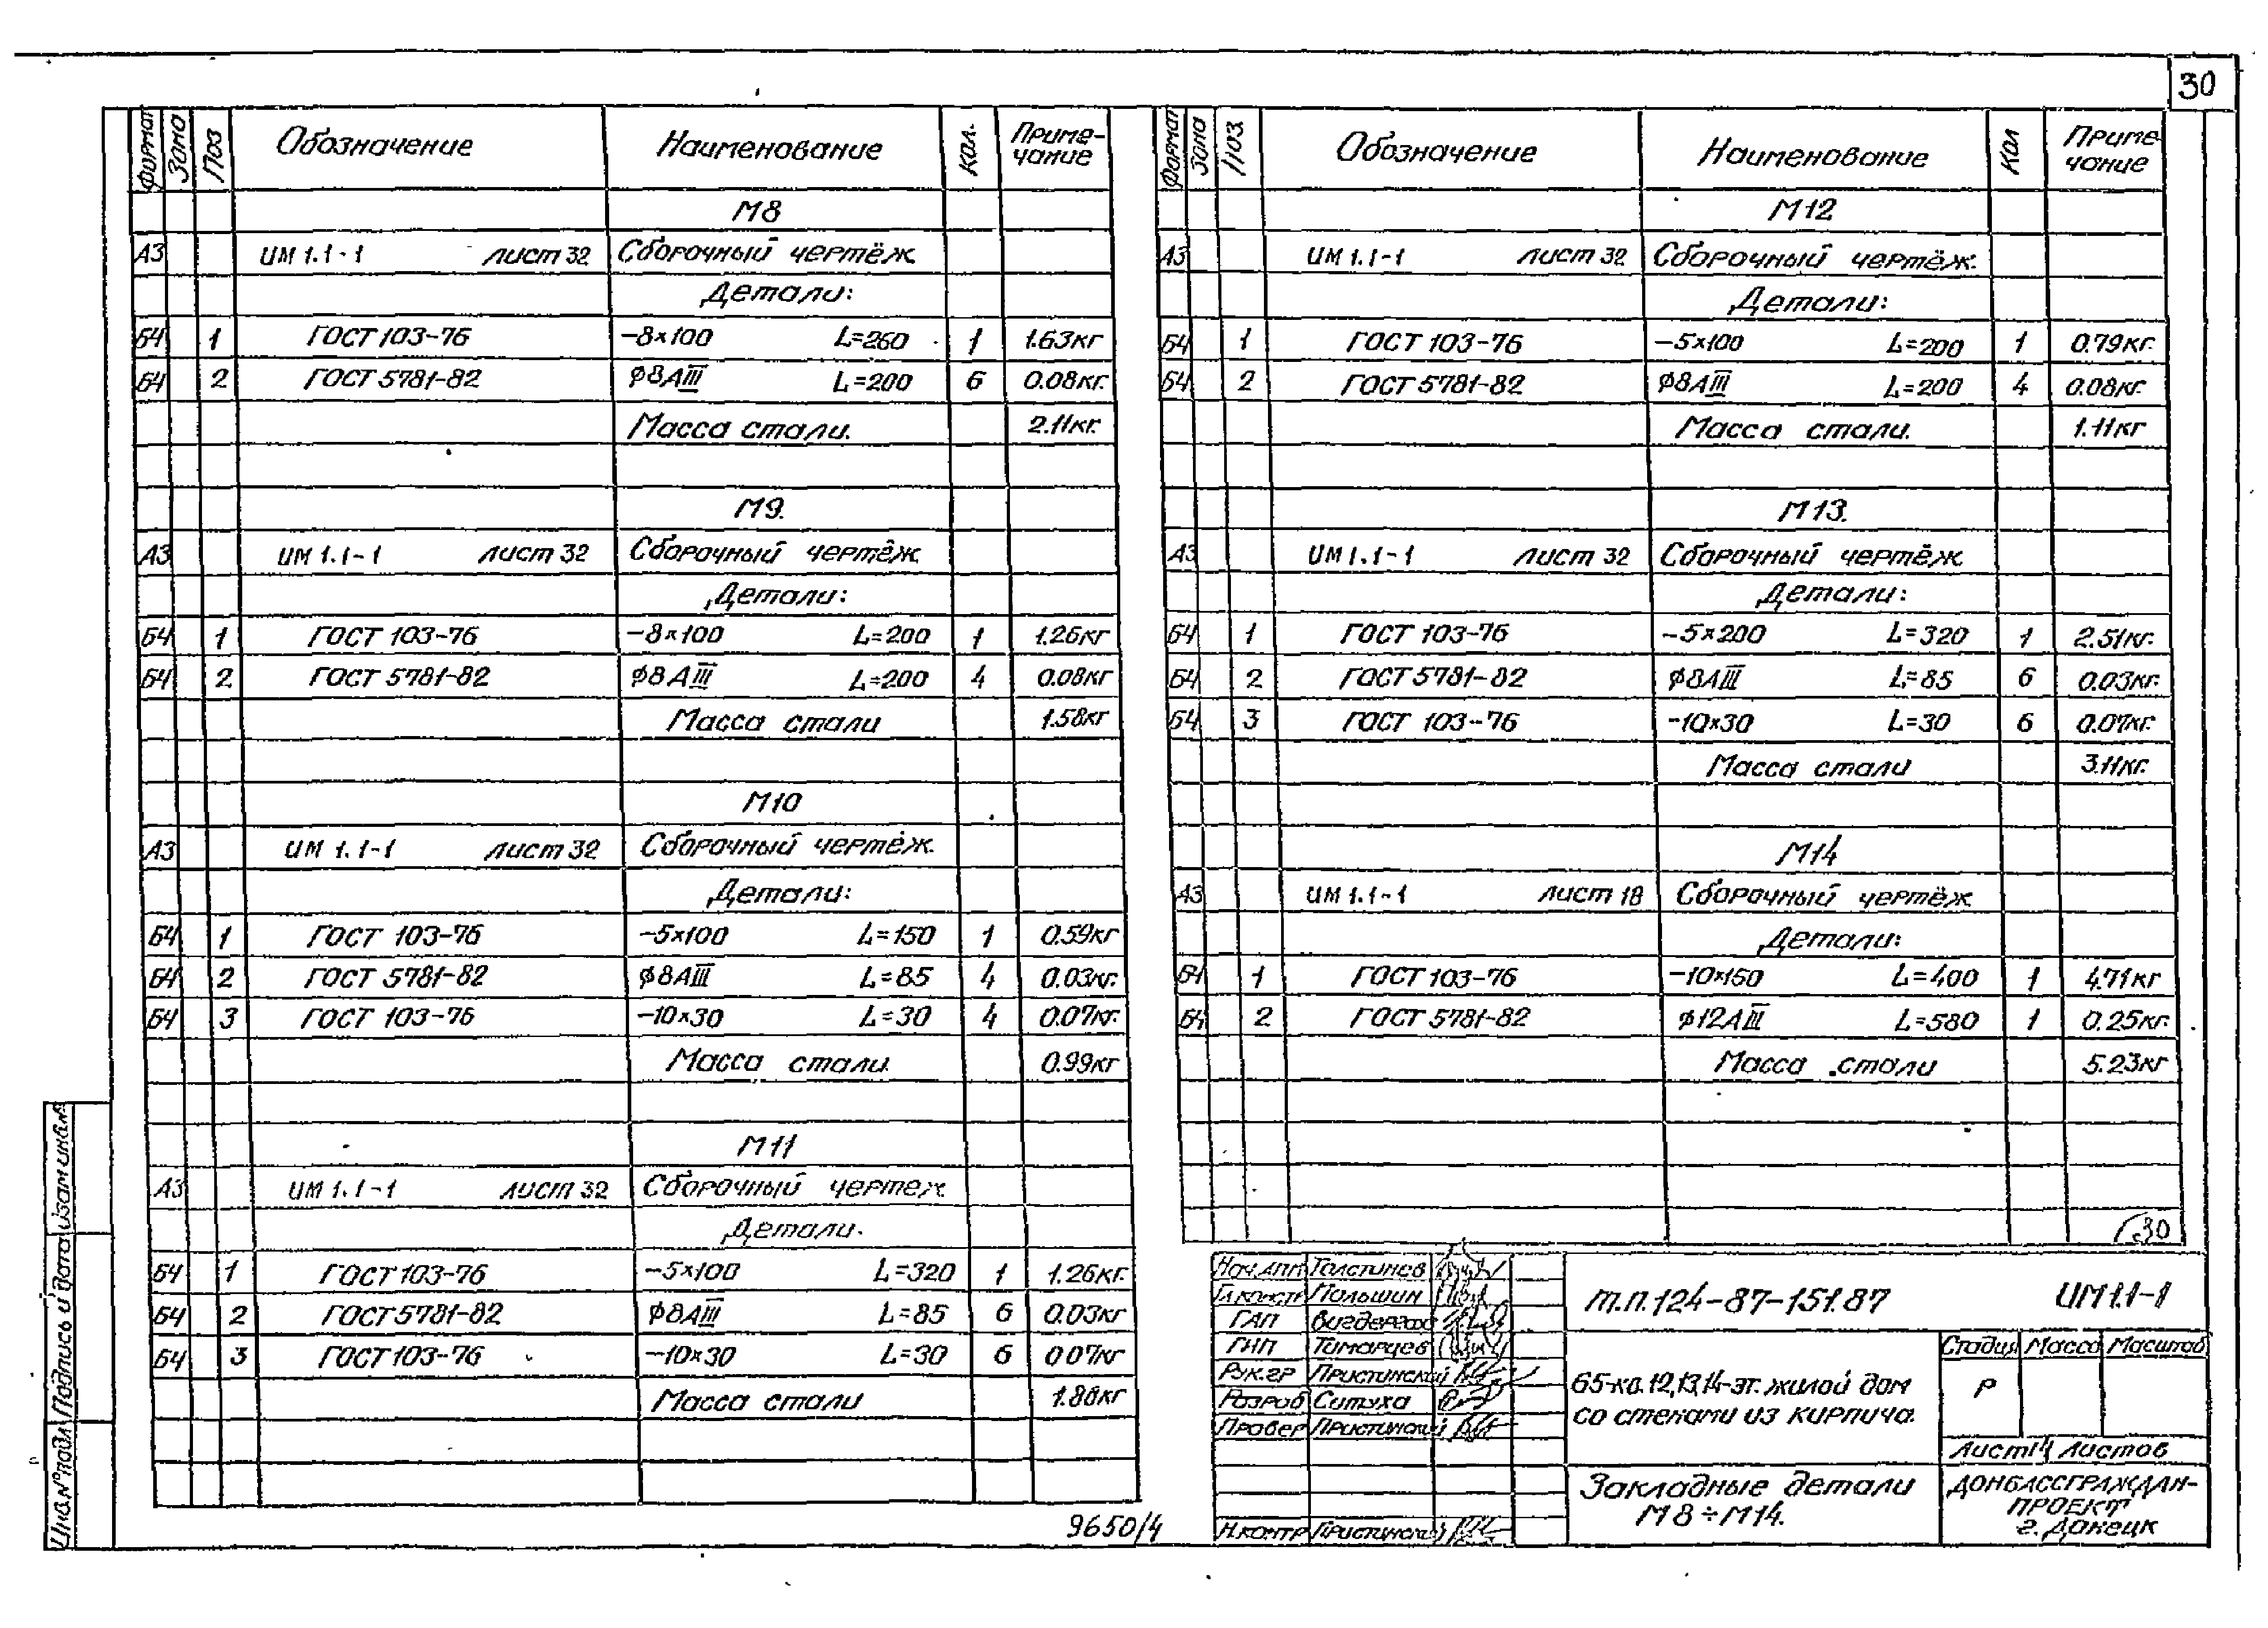 30
Формат Зона Поз Обозначение Наименование Кол. Приме-
чание
М8
А3 ИМ 1.1-1 лист 32 Сборочный чертёж
Детали:
Б4 1 ГОСТ 103-76 -8×100 L=260 1 1.63кг
Б4 2 ГОСТ 5781-82 φ8АIII L=200 6 0.08кг.
Масса стали. 2.11кг.
М9.
А3 ИМ 1.1-1 лист 32 Сборочный чертёж
Детали:
Б4 1 ГОСТ 103-76 -8×100 L=200 1 1.26кг
Б4 2 ГОСТ 5781-82 φ8АIII L=200 4 0.08кг
Масса стали 1.58кг
М10
А3 ИМ 1.1-1 лист 32 Сборочный чертёж.
Детали:
Б4 1 ГОСТ 103-76 -5×100 L=150 1 0.59кг
Б4 2 ГОСТ 5781-82 φ8АIII L=85 4 0.03кг.
Б4 3 ГОСТ 103-76 -10×30 L=30 4 0.07кг.
Масса стали. 0.99кг
М11
А3 ИМ 1.1-1 лист 32 Сборочный чертеж
Детали.
Б4 1 ГОСТ 103-76 -5×100 L=320 1 1.26кг.
Б4 2 ГОСТ 5781-82 φ8АIII L=85 6 0.03кг
Б4 3 ГОСТ 103-76 -10×30 L=30 6 0.07кг
Масса стали 1.86кг
Формат Зона Поз. Обозначение Наименование Кол Приме-
чание
М12
А3 ИМ 1.1-1 лист 32 Сборочный чертёж.
Детали:
Б4 1 ГОСТ 103-76 -5×100 L=200 1 0.79кг.
Б4 2 ГОСТ 5781-82 φ8АIII L=200 4 0.08кг.
Масса стали. 1.11кг
М13.
А3 ИМ 1.1-1 лист 32 Сборочный чертёж
Детали:
Б4 1 ГОСТ 103-76 -5×200 L=320 1 2.51кг.
Б4 2 ГОСТ 5781-82 φ8АIII L=85 6 0.03кг.
Б4 3 ГОСТ 103-76 -10×30 L=30 6 0.07кг.
Масса стали 3.11кг.
М14
А3 ИМ 1.1-1 лист 18 Сборочный чертёж
Детали:
Б4 1 ГОСТ 103-76 -10×150 L=400 1 4.71кг
Б4 2 ГОСТ 5781-82 φ12АIII L=580 1 0.25кг.
Масса стали 5.23кг
30
Нач.АПП Толстинев
Гл.констр Польшин
ГАП
ГИП Тимарцев
Рук.гр Пристинский
Разраб Ситуха
Провер Пристинский
Н.контр Пристинский
т.п.124-87-151.87 ИМ1.1-1
65-кв.12,13,14-эт. жилой дом
со стенами из кирпича.
Стадия Масса Масштаб
Р
Лист 14 Листов
Закладные детали
М8÷М14.
ДОНБАССГРАЖДАН-
ПРОЕКТ
г. Донецк
9650/4
Инв.№подл Подпись и дата Взам инв.№